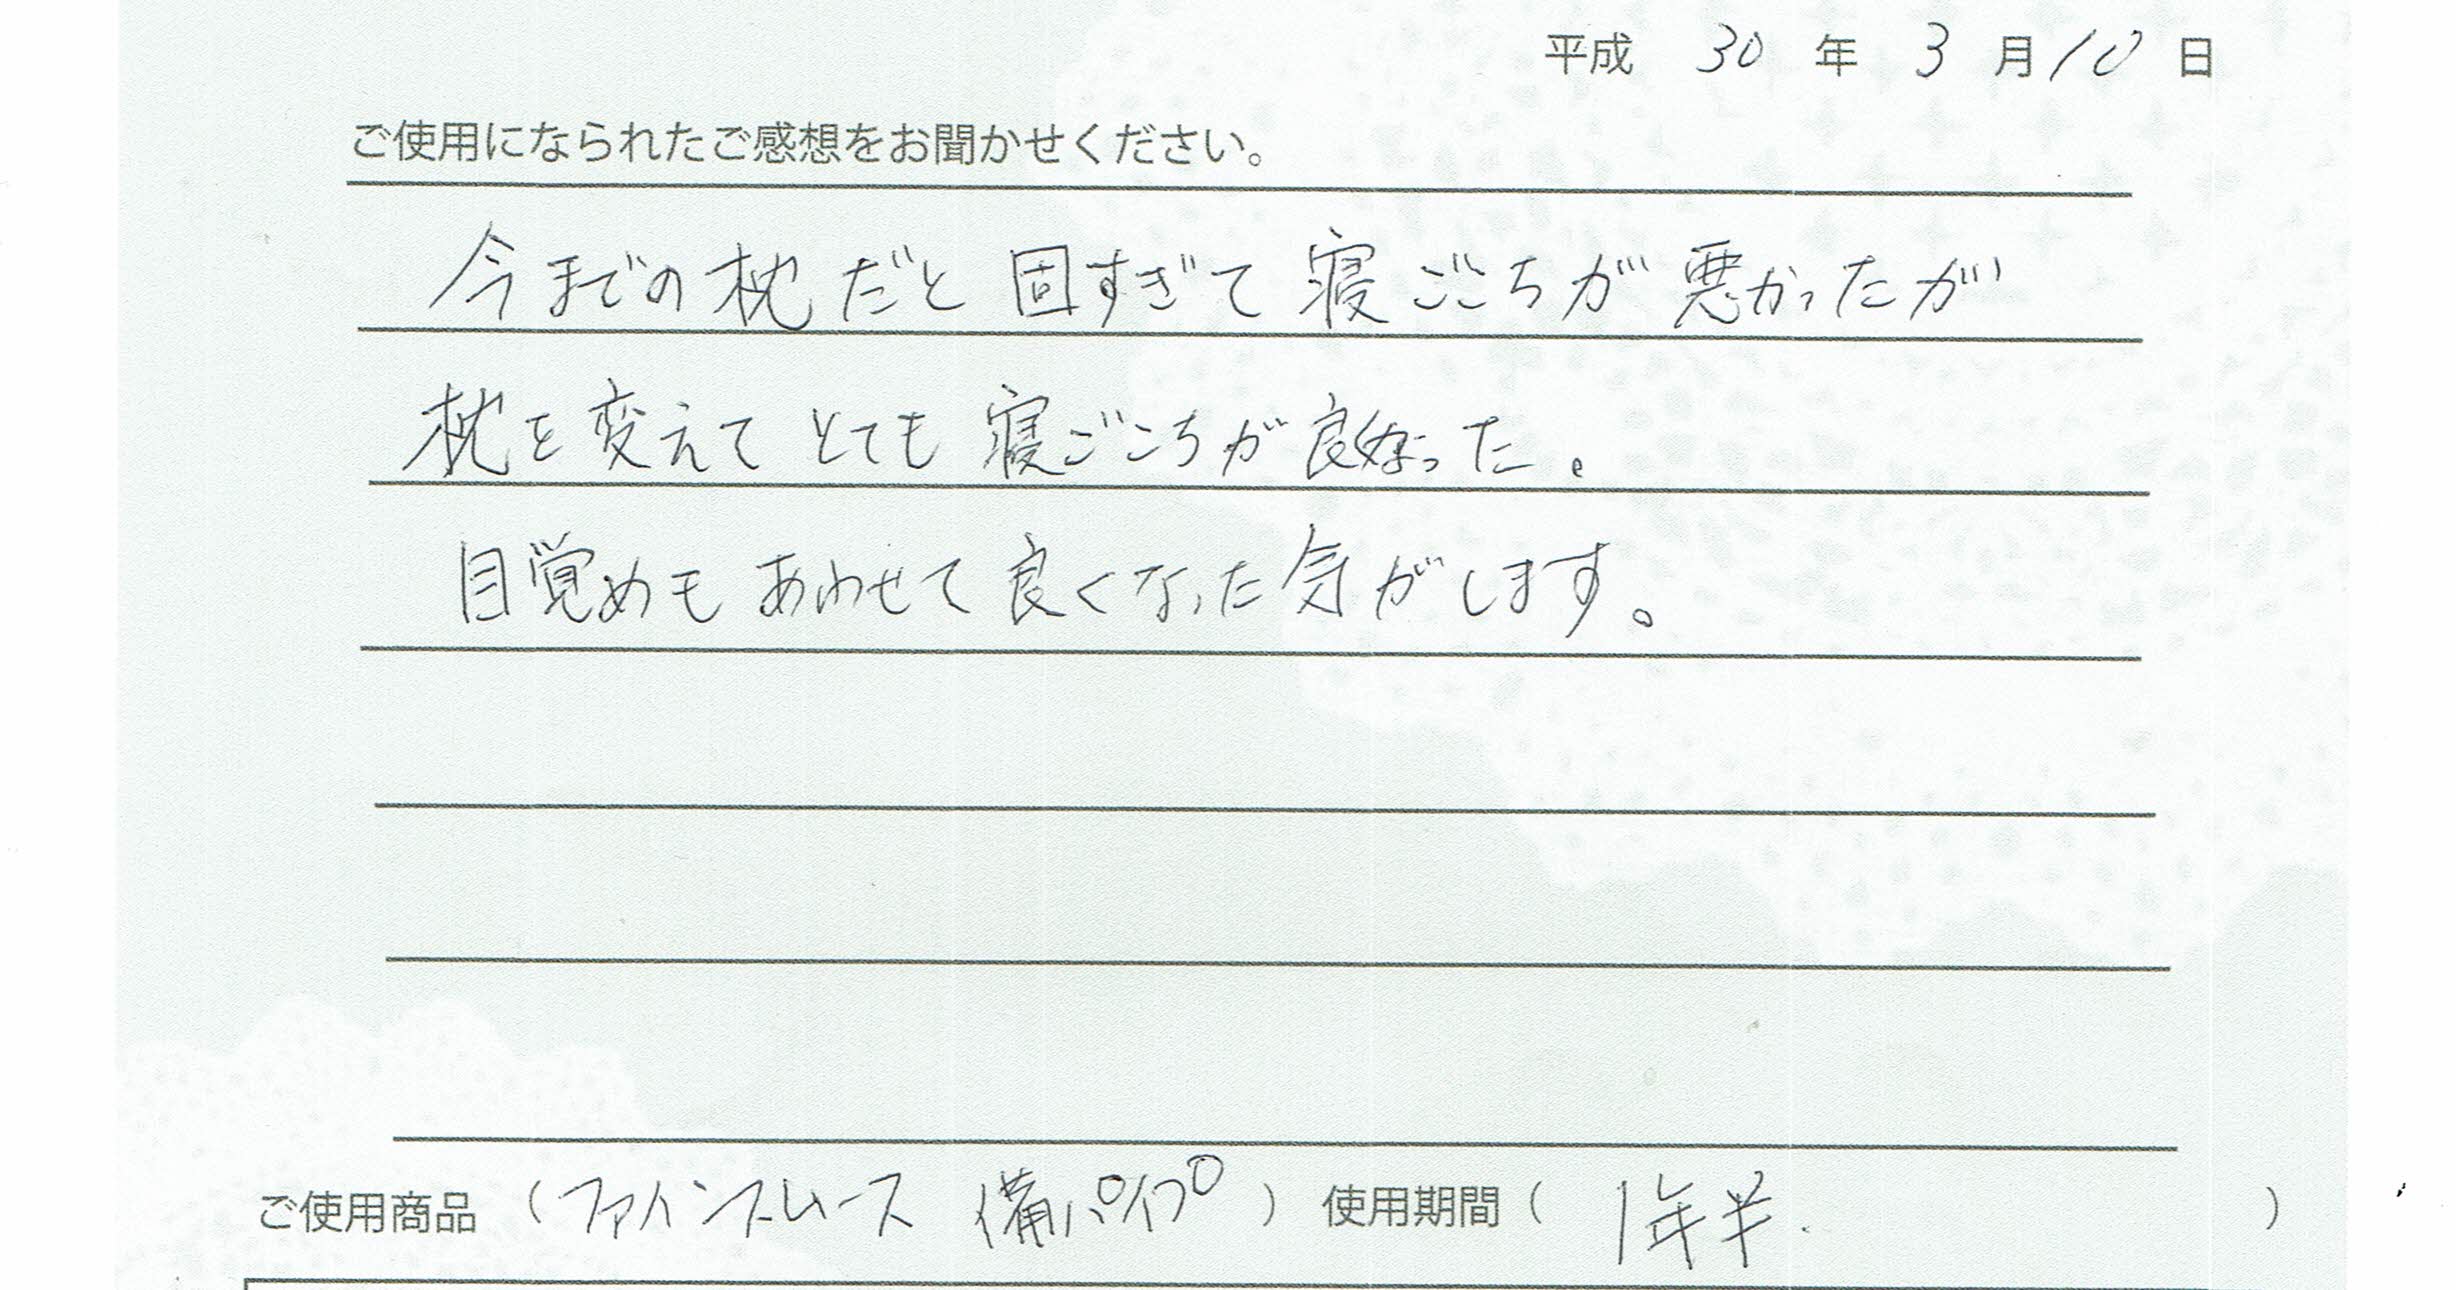 平成 30 年 3 月 10 日
ご使用になられたご感想をお聞かせください。
今までの枕だと固すぎて寝ごこちが悪かったが
枕を変えてとても寝ごこちが良くなった。
目覚めもあわせて良くなった気がします。
ご使用商品 (ファインスムース 備パイプ) 使用期間 (1年半.)